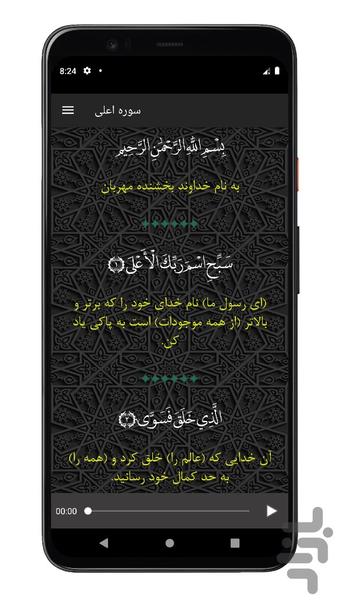 8:24
سوره اعلی
بِسْمِ اللَّهِ الرَّحْمَٰنِ الرَّحِيمِ
به نام خداوند بخشنده مهربان
سَبِّحِ اسْمَ رَبِّكَ الْأَعْلَى ﴿١﴾
(ای رسول ما) نام خدای خود را که برتر و
بالاتر (از همه موجودات) است به پاکی یاد
کن.
الَّذِي خَلَقَ فَسَوَّىٰ ﴿٢﴾
آن خدایی که (عالم را) خلق کرد و (همه را)
به حد کمال خود رسانید.
00:00
بازار